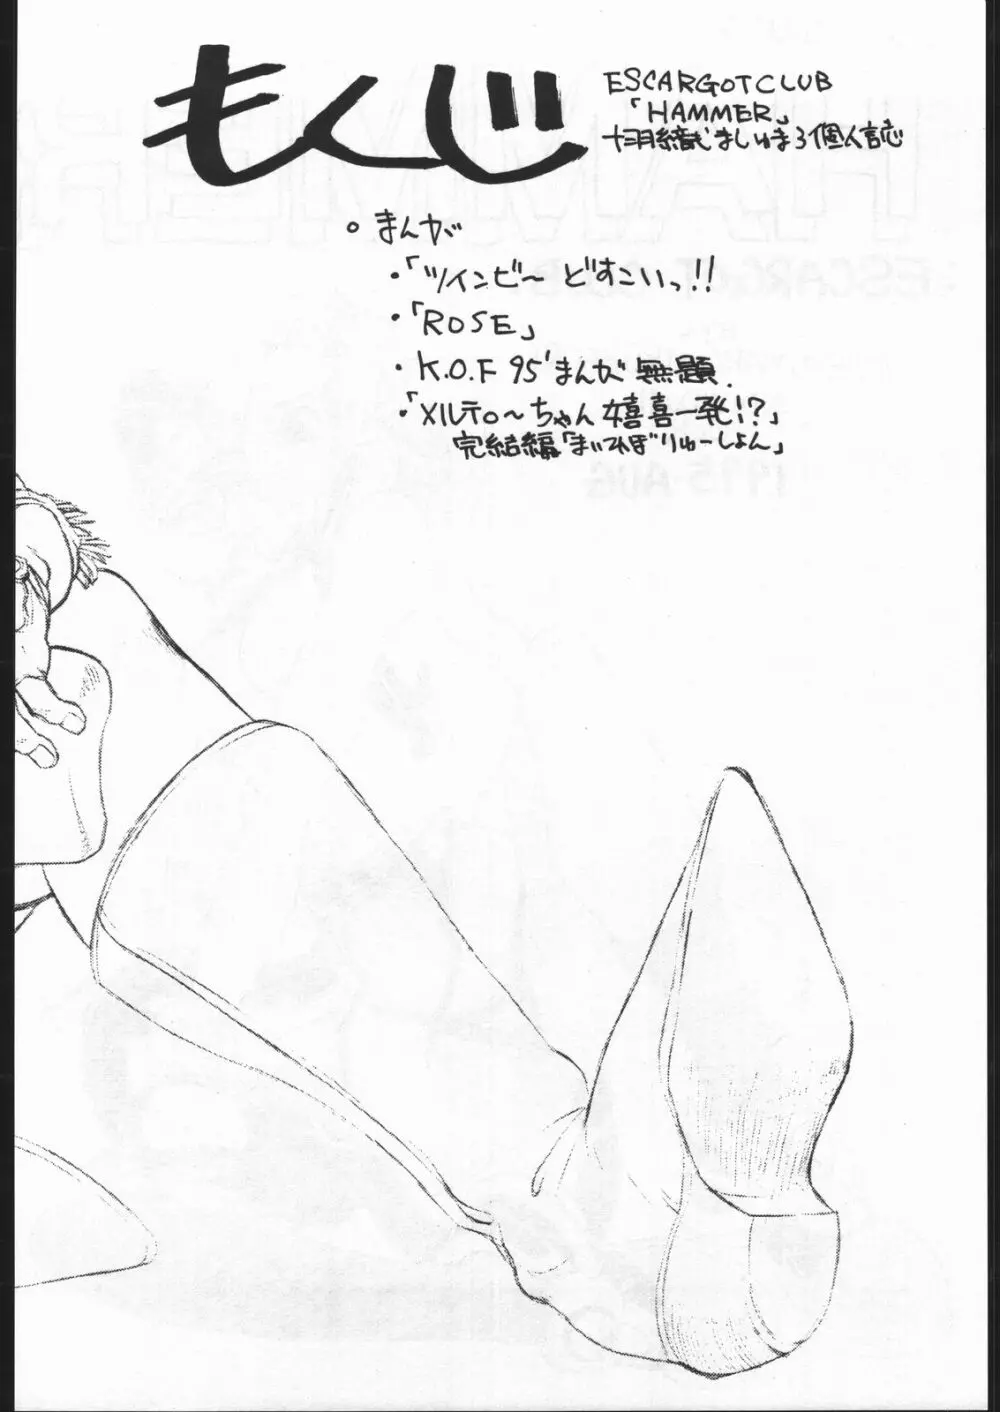 もくじ
ESCARGOT CLUB
「HAMMER」
ましゅまろ個人誌
○ まんが
・「ツインビ〜 どすこいっ!!
・「ROSE」
・K.O.F 95'まんが 無題.
・「メルティ〜ちゃん 嬉喜一発!?」
完結編「まいてれぼりゅーしょん」
ESCARGOT CLUB
1995 AUG